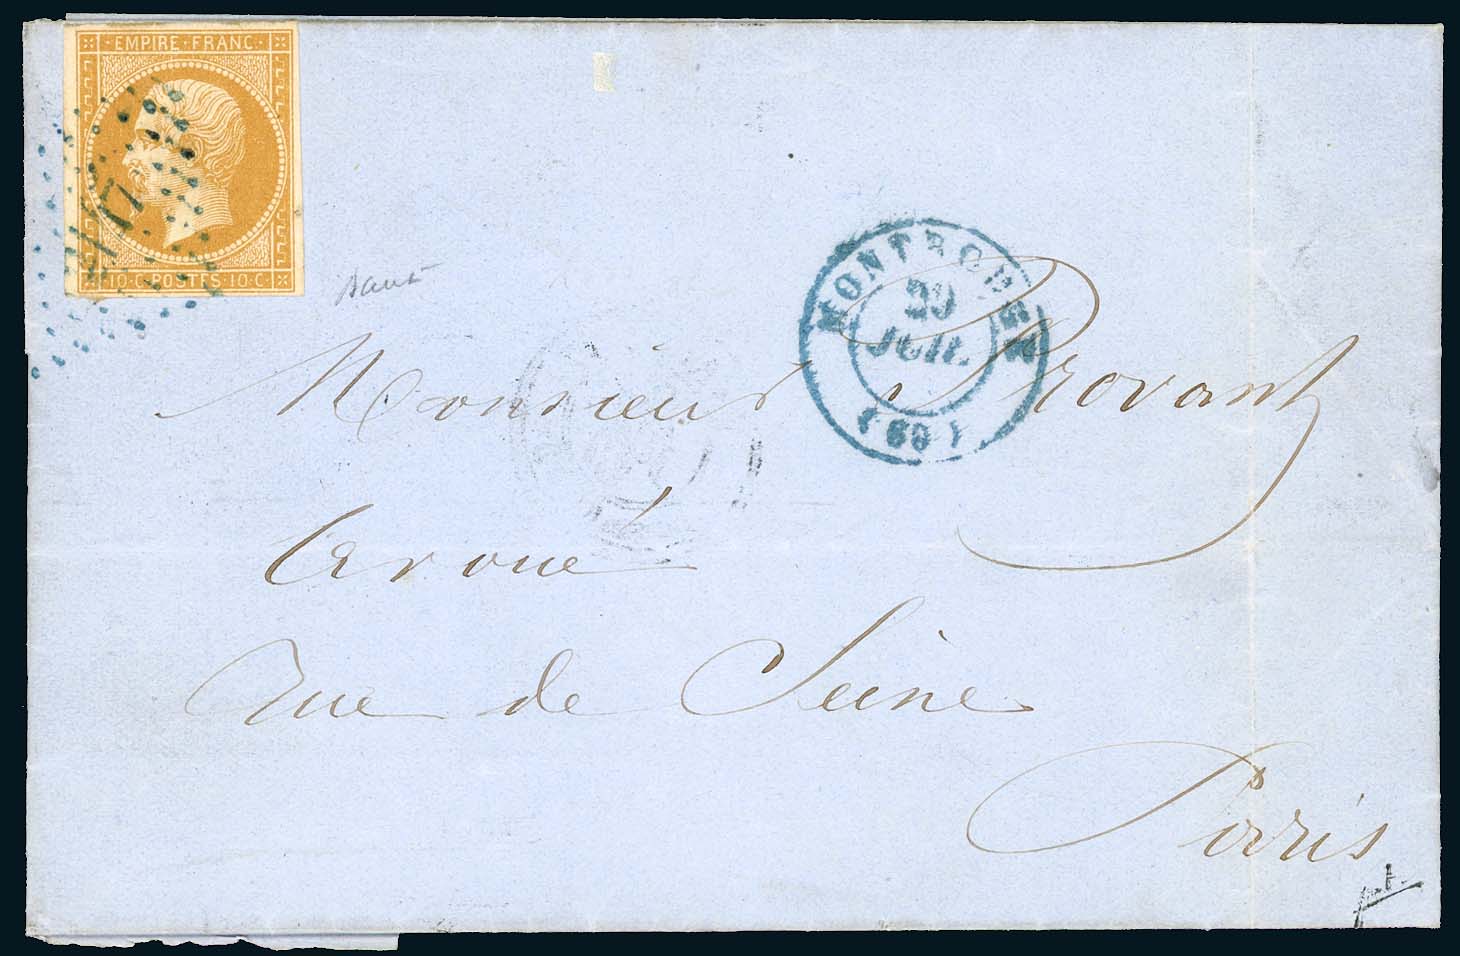 EMPIRE · FRANC.
10·C·POSTES·10·C·
MONTROUGE
29
JUIL.
(60)
Monsieur Provant
Avoué
Rue de Seine
Paris